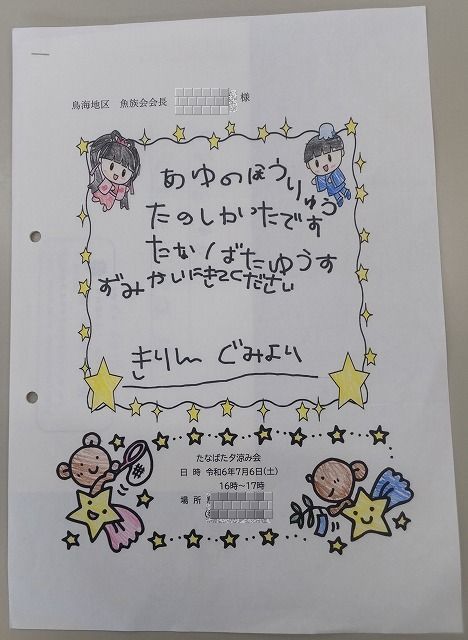 鳥海地区 魚族会会長 様
あゆのほうりゅう
たのしかいたです
たなばたゆうす
ずみかいにきてください
きりんぐみより
たなばた夕涼み会
日 時 令和6年7月6日(土)
16時~17時
場 所